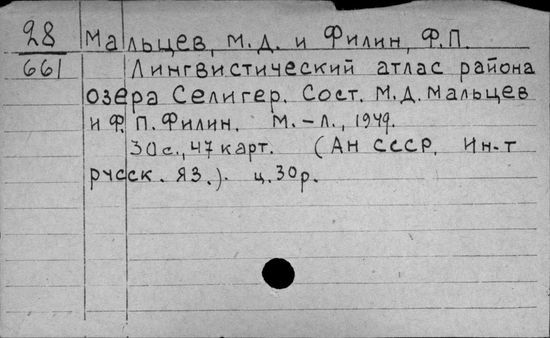 28 Мальцев, М.Д. и Филин, Ф.П.
661 Лингвистический атлас района
озера Селигер. Сост. М.Д. Мальцев
и Ф.П. Филин. М.-Л., 1949.
30с., 47 карт. (АН СССР. Ин-т
русск. яз.). ц. 30р.